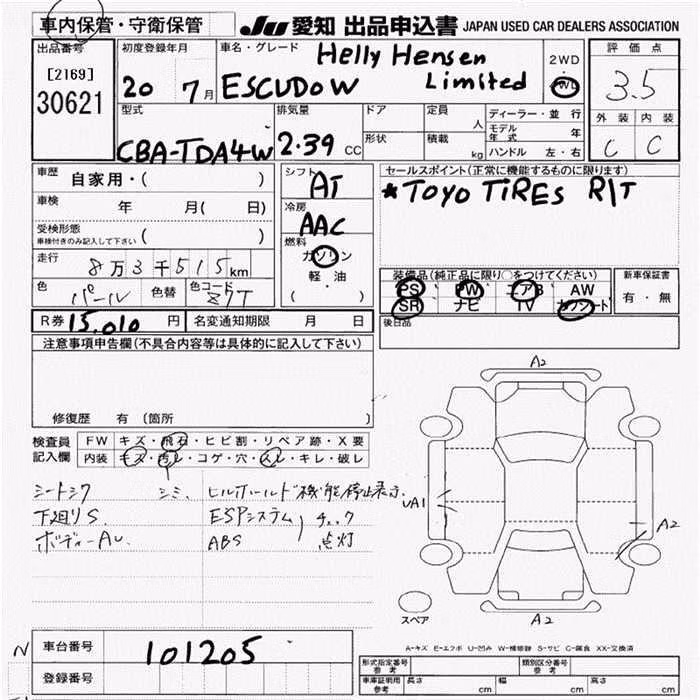 車内保管・守衛保管
JU 愛知 出品申込書 JAPAN USED CAR DEALERS ASSOCIATION
出品番号
[2169]
30621
初度登録年月
20 7月
車名・グレード
Helly Hensen
ESCUDO W Limited
2WD
・
4WD
評価点
3.5
外装 内装
C C
型式
CBA-TDA4W
排気量
2.39 CC
ドア
形状
定員
人
積載
kg
ディーラー・並行
モデル年式 年
ハンドル 左・右
車歴
自家用・( )
車検 年 月( 日)
受検形態
車検付きのみ記入して下さい ( )
走行
8万3千515km
色
パール
色替
色コード
Z7T
シフト
AT
冷房
AAC
燃料
ガソリン
・
軽・油
( )
セールスポイント(正常に機能するものに限ります)
*TOYO TIRES R/T
装備品(純正品に限り○をつけてください)
PS PW エアB AW
SR ナビ TV カワシート
新車保証書
有・無
後日品
R券 15,010 円 名変通知期限 月 日
注意事項申告欄(不具合内容等は具体的に記入して下さい)
修復歴 有 (箇所 )
検査員記入欄
FW キズ・飛石・ヒビ割・リペア跡・X要
内装 キズ・汚レ・コゲ・穴・スレ・キレ・破レ
シートシワ シミ、ヒルホールド機能停止表示
下廻りS
ESPシステム チェック
ボディーAU
ABS 点灯
A2
UA1
A2
A2
スペア
A-キズ E-エクボ U-凹み W-補修跡 S-サビ C-腐食 XX-交換済
N
車台番号 101205
登録番号
形式指定番号 参考
類別区分番号 参考
車庫証明用 参考 長さ cm 幅 cm 高さ cm